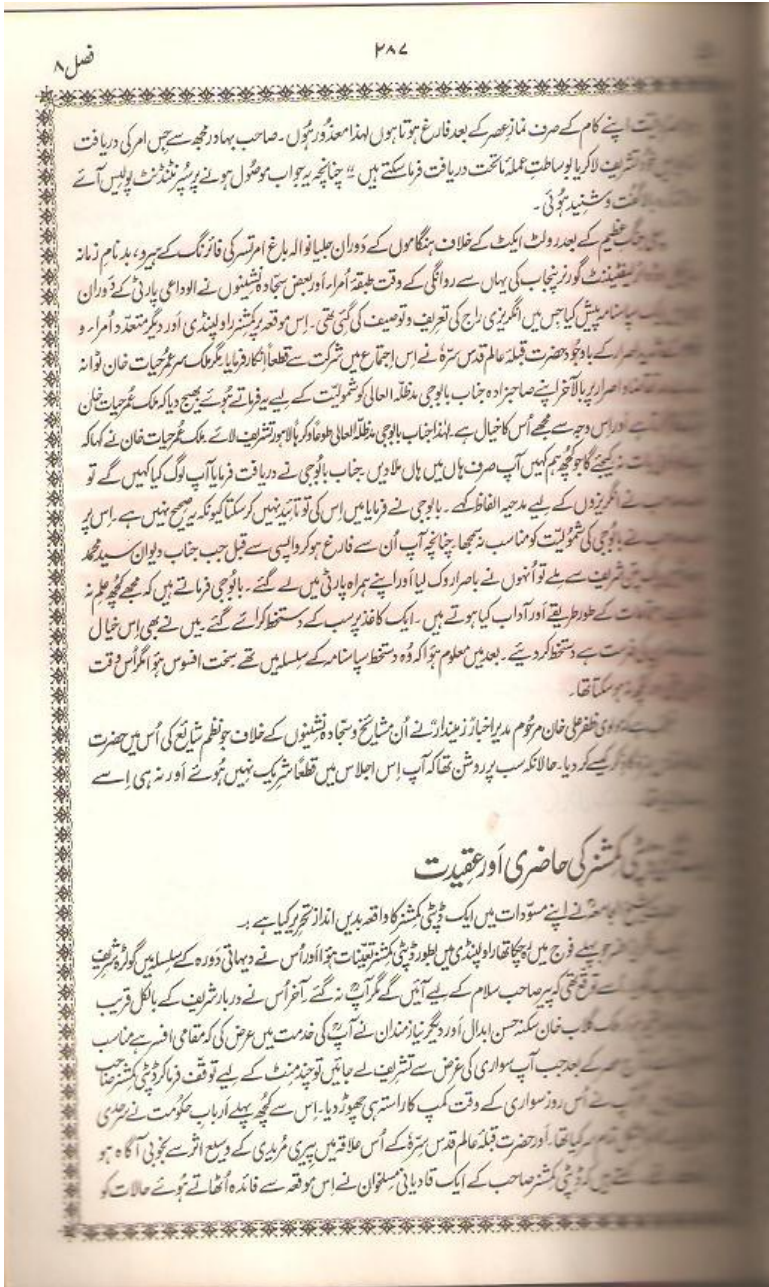 فصل ۸
۲۸۷
اپنے کام کے صرف نمازِ عصر کے بعد فارغ ہوتا ہوں لہذا معذور ہوں۔ صاحب بہادر مجھ سے جس امر کی دریافت
تشریف لا کر یا بوساطتِ عملۂ ماتحت دریافت فرما سکتے ہیں" چنانچہ یہ جواب موصول ہونے پر سپرنٹنڈنٹ پولیس آئے
گفت و شنید ہوئی۔
جنگِ عظیم کے بعد رولٹ ایکٹ کے خلاف ہنگاموں کے دَوران جلیانوالہ باغ امرتسر کی فائرنگ کے ہیرو، بدنامِ زمانہ
لیفٹیننٹ گورنر پنجاب کی یہاں سے روانگی کے وقت طبقۂ اُمراء اور بعض سجادہ نشینوں نے الوداعی پارٹی کے دَوران
سپاسنامہ پیش کیا جس میں انگریزی راج کی تعریف و توصیف کی گئی تھی۔ اِس موقعہ پر کمشنر راولپنڈی اور دیگر متعدد اُمراء و
اصرار کے باوجود حضرت قبلۂ عالم قدس سرہٗ نے اِس اجتماع میں شرکت سے قطعاً انکار فرمایا۔ مگر ملک سر عمر حیات خان ٹوانہ
اصرار پر بالآخر اپنے صاحبزادہ جناب بابوجی مدظلہ العالی کو شمولیت کے لیے یہ فرماتے ہوئے بھیج دیا کہ ملک عمر حیات خان
اور اس وجہ سے مجھے اُس کا خیال ہے۔ لہٰذا جناب بابوجی مدظلہ العالی طوعاً و کرہاً لاہور تشریف لائے۔ ملک عمر حیات خان نے کہا کہ
نہ کیجئے گا جو کچھ ہم کہیں آپ صرف ہاں میں ہاں ملا دیں۔ جناب بابوجی نے دریافت فرمایا آپ لوگ کیا کہیں گے تو
نے انگریزوں کے لیے مدحیہ الفاظ کہے۔ بابوجی نے فرمایا میں اِس کی تو تائید نہیں کر سکتا کیونکہ یہ صحیح نہیں ہے۔ اِس پر
نے بابوجی کی شمولیت کو مناسب نہ سمجھا۔ چنانچہ آپ اُن سے فارغ ہو کر واپسی سے قبل جب جناب دیوان سید محمد
شریف سے ملے تو اُنہوں نے باصرار روک لیا اور اپنے ہمراہ پارٹی میں لے گئے۔ بابوجی فرماتے ہیں کہ مجھے کچھ علم نہ
کے طور طریقے اور آداب کیا ہوتے ہیں۔ ایک کاغذ پر سب کے دستخط کرائے گئے۔ میں نے بھی اِس خیال
ہے دستخط کر دیئے۔ بعد میں معلوم ہوا کہ وُہ دستخط سپاسنامہ کے سلسلہ میں تھے۔ سخت افسوس ہوا مگر اُس وقت
نہ ہو سکتا تھا۔
ظفر علی خان مرحوم مدیر اخبار زمیندار نے اُن مشائخ و سجادہ نشینوں کے خلاف جو نظم شایع کی اُس میں حضرت
کر دیا۔ حالانکہ سب پر روشن تھا کہ آپ اِس اجلاس میں قطعاً شریک نہیں ہوئے اور نہ ہی اِسے
کمشنر کی حاضری اَور عقیدت
نے اپنے مسودات میں ایک ڈپٹی کمشنر کا واقعہ بدیں انداز تحریر کیا ہے:۔
جو پہلے فوج میں رہ چکا تھا راولپنڈی میں بطور ڈپٹی کمشنر تعینات ہوا اور اُس نے دیہاتی دَورہ کے سلسلہ میں گولڑہ شریف
توقع تھی کہ پیر صاحب سلام کے لیے آئیں گے مگر آپؒ نہ گئے۔ آخر اُس نے دربار شریف کے بالکل قریب
خان سکنہ حسن ابدال اور دیگر نیازمندان نے آپؒ کی خدمت میں عرض کی کہ مقامی افسر ہے مناسب
کے بعد جب آپ سواری کی غرض سے تشریف لے جائیں تو چند منٹ کے لیے توقف فرما کر ڈپٹی کمشنر صاحب
نے اُس روز سواری کے وقت کمپ کا راستہ ہی چھوڑ دیا۔ اِس سے کچھ پہلے اَربابِ حکومت نے سرحدی
کیا تھا۔ اور حضرت قبلۂ عالم قدس سرہٗ کے اُس علاقہ میں پیری مُریدی کے وسیع اثر سے بخوبی آگاہ ہو
ہیں کہ ڈپٹی کمشنر صاحب کے ایک قادیانی مسلخوان نے اِس موقعہ سے فائدہ اُٹھاتے ہوئے حالات کو